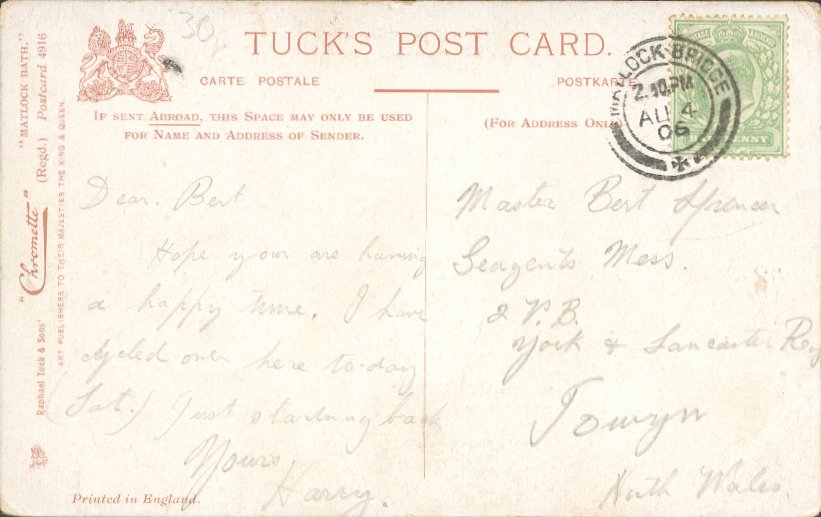 TUCK'S POST CARD.
CARTE POSTALE
POSTKARTE
IF SENT ABROAD, THIS SPACE MAY ONLY BE USED
FOR NAME AND ADDRESS OF SENDER.
(FOR ADDRESS ONLY
MATLOCK·BRIDGE
2.40PM
AU 4
06
PENNY
"MATLOCK BATH."
"Chromette" (Regd.) Postcard 4916
Raphael Tuck & Sons'
ART PUBLISHERS TO THEIR MAJESTIES THE KING & QUEEN.
Dear. Bert
Hope your are having
a happy time. I have
cycled over here to-day
Sat.) Just starting back
Yours
Harry.
Master Bert Spencer
Seagents Mess.
2 V.B.
York & Lancaster Reg
Towyn
North Wales.
Printed in England.